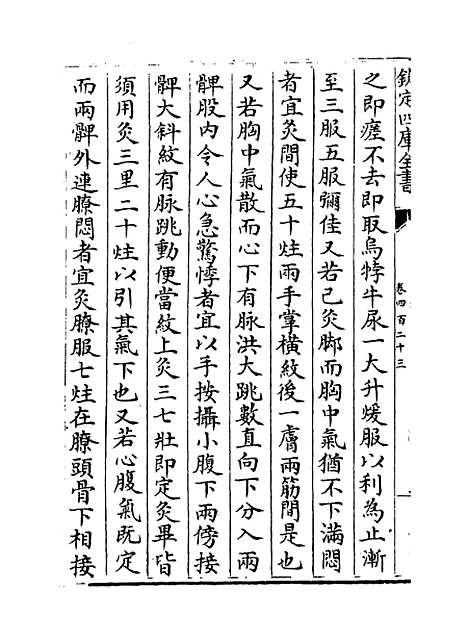 欽定四庫全書
卷四百二十三
一
之即瘥不去即取烏牸牛尿一大升煖服以利為止漸
至三服五服彌佳又若已灸脚而胸中氣猶不下滿悶
者宜灸間使五十炷兩手掌橫紋後一膚兩筋間是也
又若胸中氣散而心下有脉洪大跳數直向下分入兩
髀股内令人心急驚悸者宜以手按攝小腹下兩傍接
髀大斜紋有脉跳動便當紋上灸三七壯即定灸畢皆
須用灸三里二十炷以引其氣下也又若心腹氣既定
而兩髀外連膫悶者宜灸膫服七炷在膫頭骨下相接